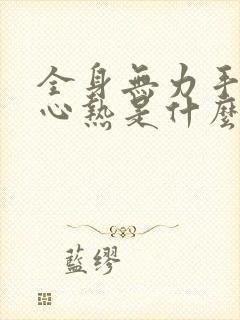 全身無力手
心熱是什麼
藍繆